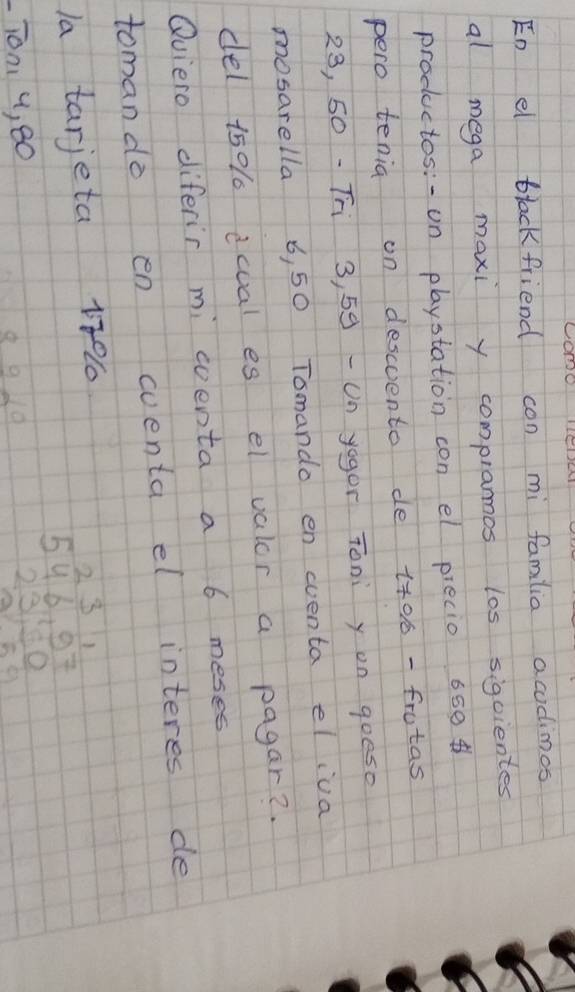 En el blackfriend con mi familia acudimos
al mega maxi y compramos los siguientes
productos:- un playstation con el precio 659 $
pero tenia un descuento de 17% - frutas
23,50 - Tri 3,59 - Un yogur Toni y un queso
mosarella 6,50 Tomando en cuenta el iva
del 15% ¿cual es el valor a pagar?.
Quiero diferir mi cuenta a 6 meses
tomando en cuenta el interes de
la tarjeta 17%
- Toni 4,80
2 3 1
546,97
23,50